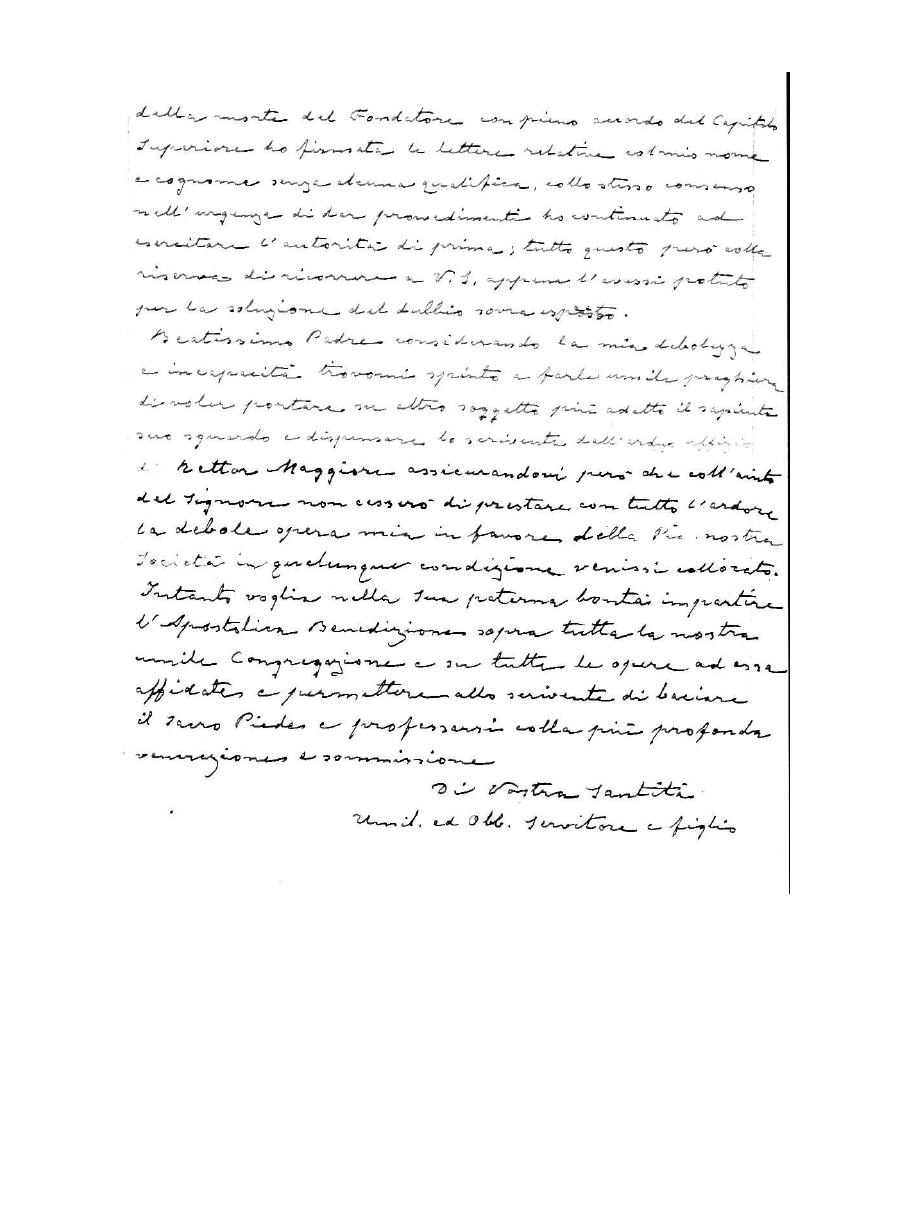 della morte del Fondatore con pieno accordo del Capitolo
Superiore ho firmata le lettere relative col mio nome
e cognome senza alcuna qualifica, collo stesso consenso
nell'urgenza di dar provvedimenti ho continuato ad
esercitare l'autorità di prima; tutto questo però colla
riserva di ricorrere a V. S. appena l'avessi potuto
per la soluzione del dubbio sovra esposto.
Beatissimo Padre considerando la mia debolezza
e incapacità trovomi spinto a farle umile preghiera
di voler portare su altro soggetto più adatto il sapiente
suo sguardo e dispensare lo scrivente dall'arduo uffizio
di Rettor Maggiore assicurandovi però che coll'aiuto
del Signore non cesserò di prestare con tutto l'ardore
la debole opera mia in favore della Pia nostra
Società in qualunque condizione venissi collocato.
Intanto voglia nella Sua paterna bontà impartire
l'Apostolica Benedizione sopra tutta la nostra
umile Congregazione e su tutte le opere ad essa
affidate e permettere allo scrivente di baciare
il Sacro Piede e professarsi colla più profonda
venerazione e sommissione
Di Vostra Santità
Umil. ed Obb. Servitore e figlio